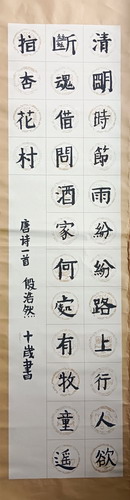 清明時節雨紛紛路上行人欲
斷魂借問酒家何處有牧童遥
指杏花村
唐诗一首 浩然 十歲書